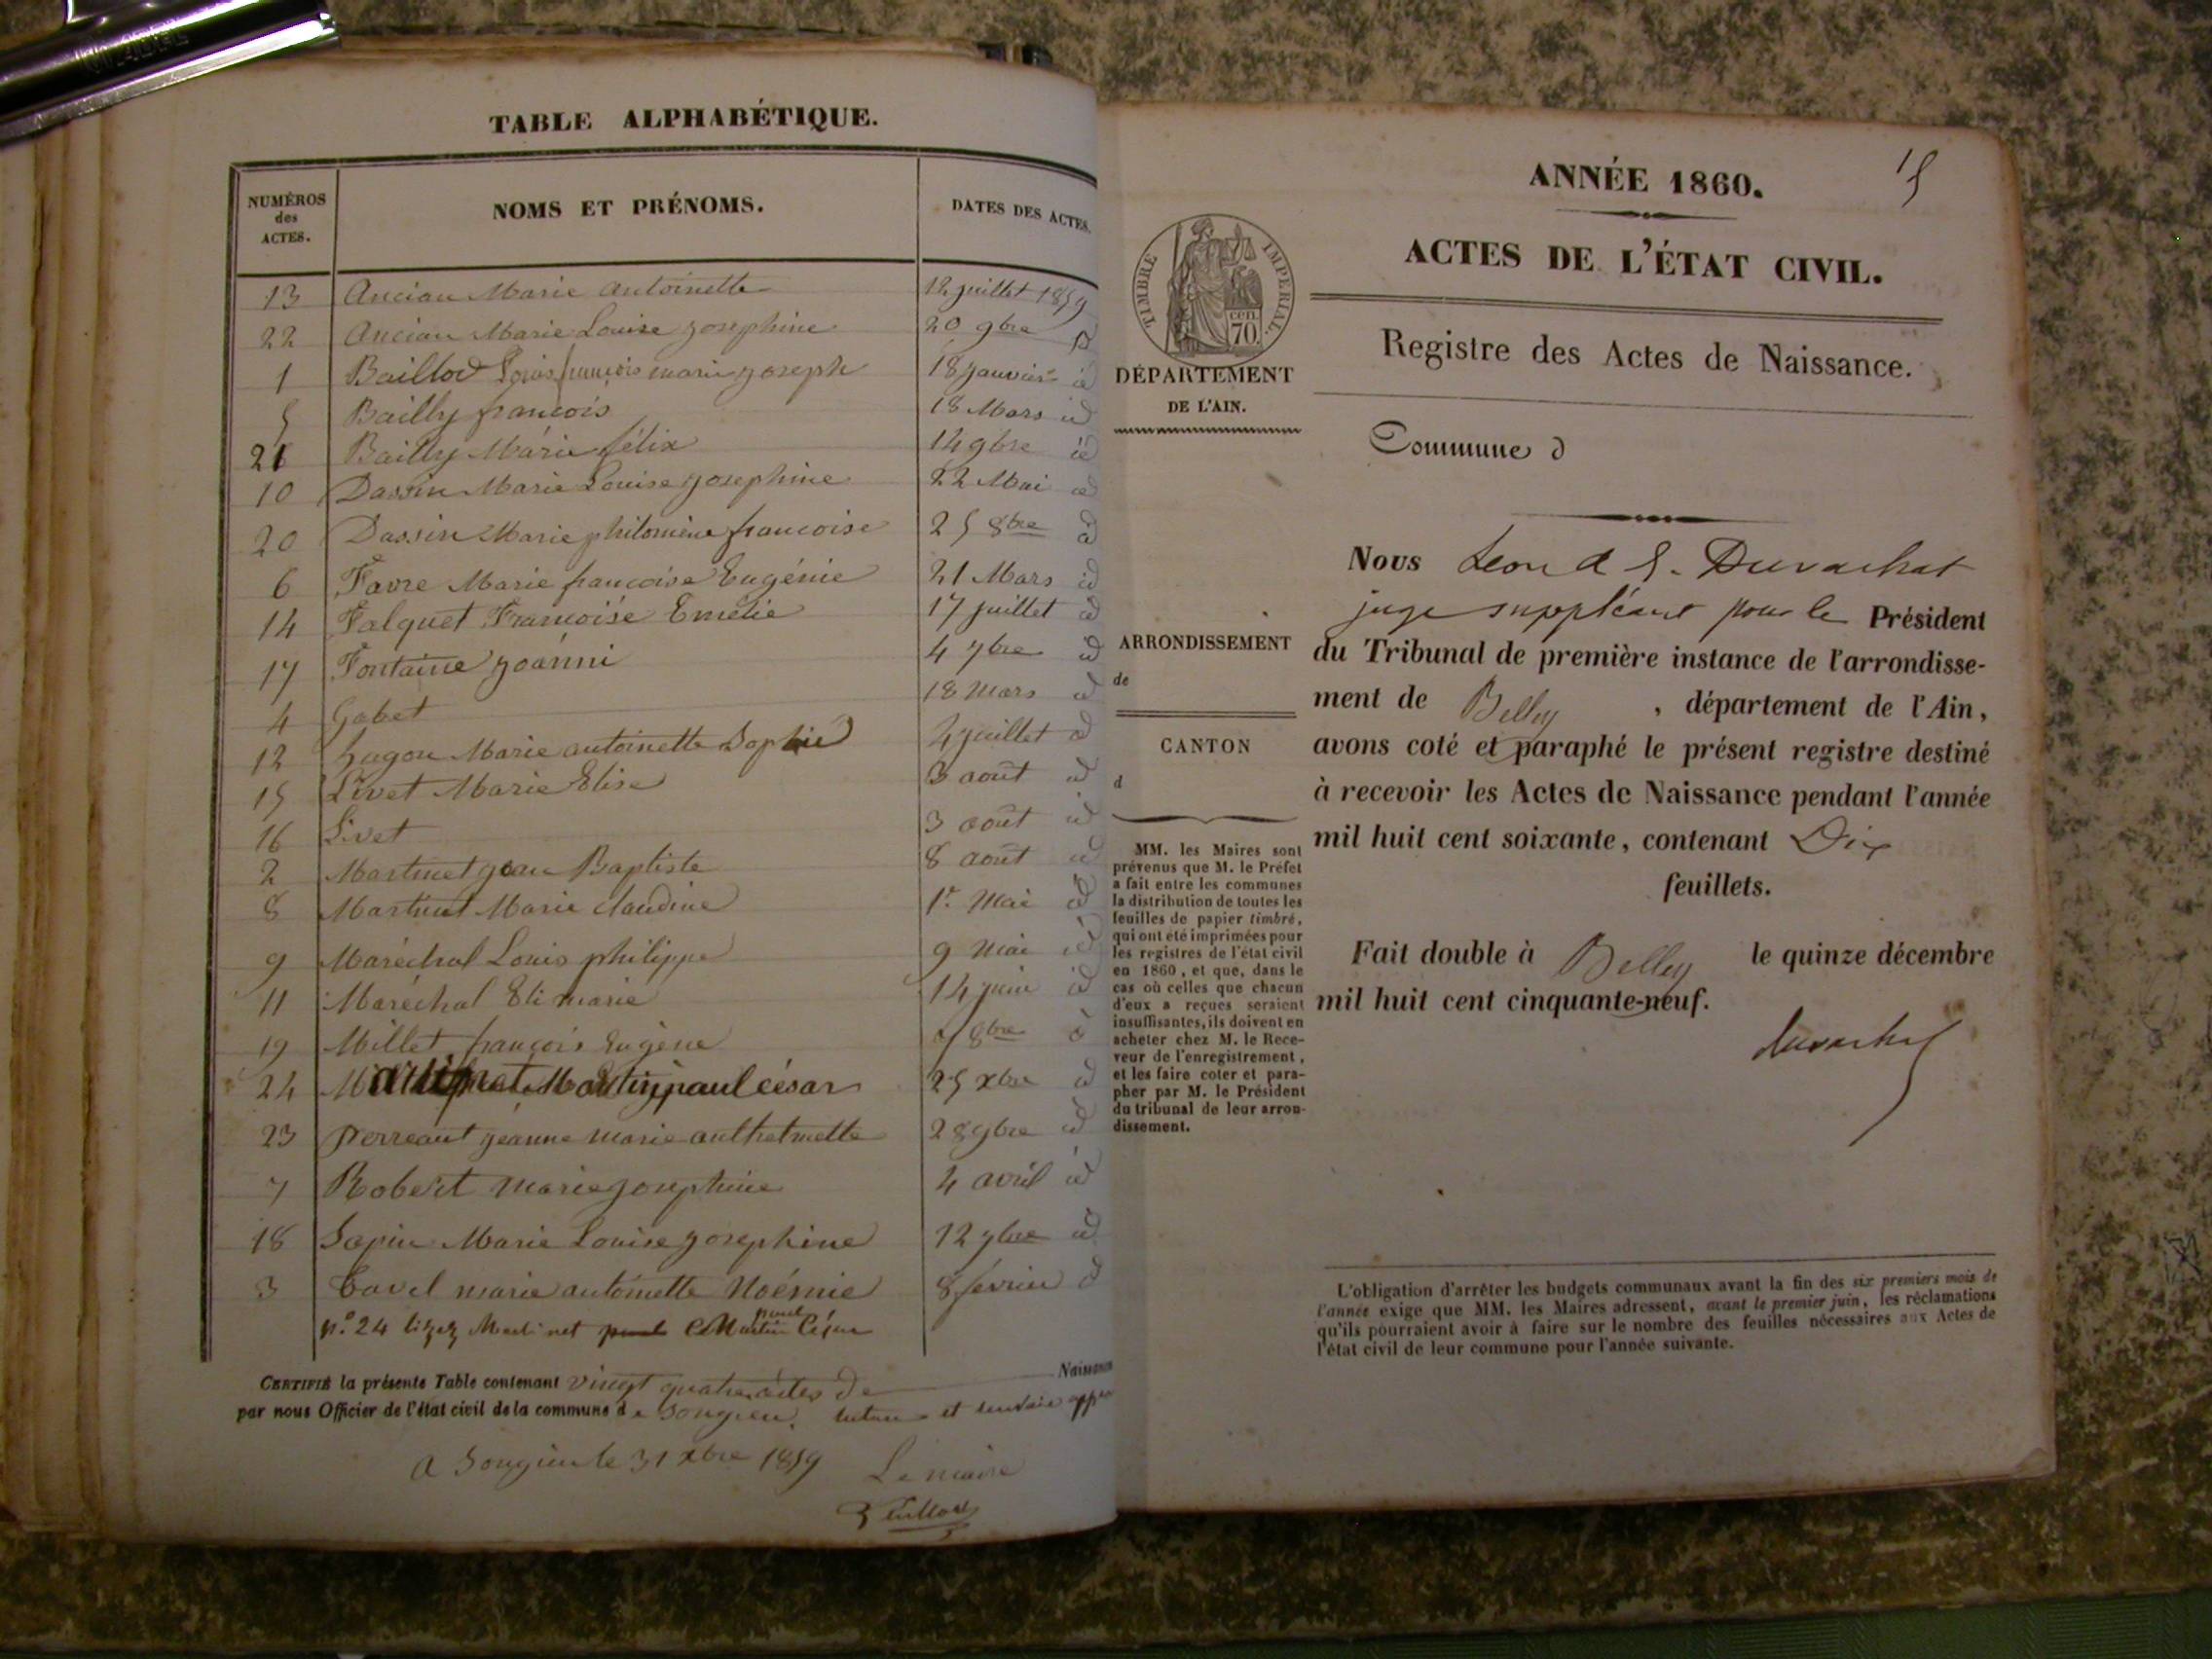 TABLE ALPHABÉTIQUE.
NUMÉROS des ACTES.
NOMS ET PRÉNOMS.
DATES DES ACTES.
13 Ancian Marie Antoinette 12 juillet 1859
22 Ancian Marie Louise josephine 20 9bre
1 Baillod Louis françois marie joseph 18 janvier id
5 Bailly francois 18 Mars id
21 Bailly Marie félix 14 9bre id
10 Dassin Marie Louise josephine 22 Mai id
20 Dassin Marie philomène francoise 25 8bre id
6 Favre Marie francoise Eugénie 21 Mars id
14 Falquet Francoise Emélie 17 juillet id
17 Fontaine joanni 4 7bre id
4 Gobet 18 Mars id
12 hugon Marie antoinette Sophie 4 juillet id
15 Livet Marie Elise 3 aout id
16 Livet 3 aout id
2 Martinet jean Baptiste 8 aout id
8 Martinet Marie claudine 1r Mai id
9 Maréchal Louis philippe 9 Mai id
11 Maréchal Eli marie 14 juin id
19 Millet françois Eugène 7 8bre id
24 Martinet Martin paul césar 25 xbre id
23 perreaut jeanne marie anthelmette 28 9bre id
7 Robert Marie josephine 4 avril id
18 Sapin Marie Louise josephine 12 7bre id
3 Cavel marie antoinette Noémie 8 février id
n.° 24 lizez Martinet paul Martin César
CERTIFIÉ la présente Table contenant vingt quatre actes de Naissance
par nous Officier de l'état civil de la commune de Songieu.
A Songieu le 31 xbre 1859
Le maire
Baillod
15
ANNÉE 1860.
ACTES DE L'ÉTAT CIVIL.
TIMBRE IMPERIAL.
CEN. 70
DÉPARTEMENT
DE L'AIN.
Registre des Actes de Naissance.
Commune d
ARRONDISSEMENT
de
CANTON
d
MM. les Maires sont
prévenus que M. le Préfet
a fait entre les communes
la distribution de toutes les
feuilles de papier timbré,
qui ont été imprimées pour
les registres de l'état civil
en 1860, et que, dans le
cas où celles que chacun
d'eux a reçues seraient
insuffisantes, ils doivent en
acheter chez M. le Rece-
veur de l'enregistrement,
et les faire coter et para-
pher par M. le Président
du tribunal de leur arron-
dissement.
Nous Leon Duvachat
juge suppléant pour le Président
du Tribunal de première instance de l'arrondisse-
ment de Belley, département de l'Ain,
avons coté et paraphé le présent registre destiné
à recevoir les Actes de Naissance pendant l'année
mil huit cent soixante, contenant Dix
feuillets.
Fait double à Belley le quinze décembre
mil huit cent cinquante-neuf.
Duvachat
L'obligation d'arrêter les budgets communaux avant la fin des six premiers mois de
l'année exige que MM. les Maires adressent, avant le premier juin, les réclamations
qu'ils pourraient avoir à faire sur le nombre des feuilles nécessaires aux Actes de
l'état civil de leur commune pour l'année suivante.